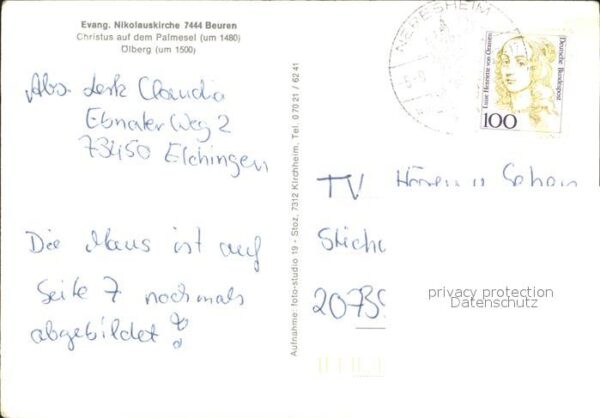 Evang. Nikolauskirche 7444 Beuren
Christus auf dem Palmesel (um 1480)
Ölberg (um 1500)
NERESHEIM
Luise Henriette von Oranien
Deutsche Bundespost
100
Abs. Claudia
Ebnater Weg 2
73450 Elchingen
Die Maus ist auf
Seite 7 nochmals
abgebildet!
Aufnahme: foto-studio 19 - Stoz, 7312 Kirchheim, Tel. 0 70 21 / 62 41
TV Hören u Sehen
2073
privacy protection
Datenschutz